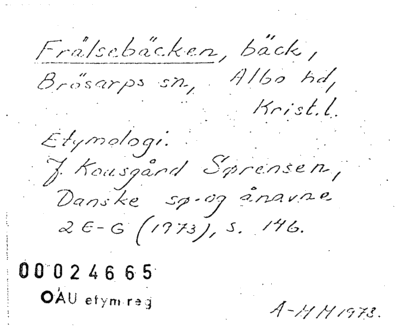 Frälsebäcken, bäck,
Brösarps sn, Albo hd,
Krist.l.
Etymologi.
J. Kousgård Sørensen,
Danske sø- og ånavne
2 E-G (1973), s. 146.
00024665
OAU etym reg
A-MM 1973.